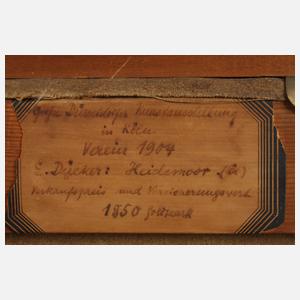 Große Düsseldorfer Kunstausstellung
in Köln
Verein 1904
E. Dücker: Heidemoor
Verkaufspreis und Versicherungswert
1850 Goldmark